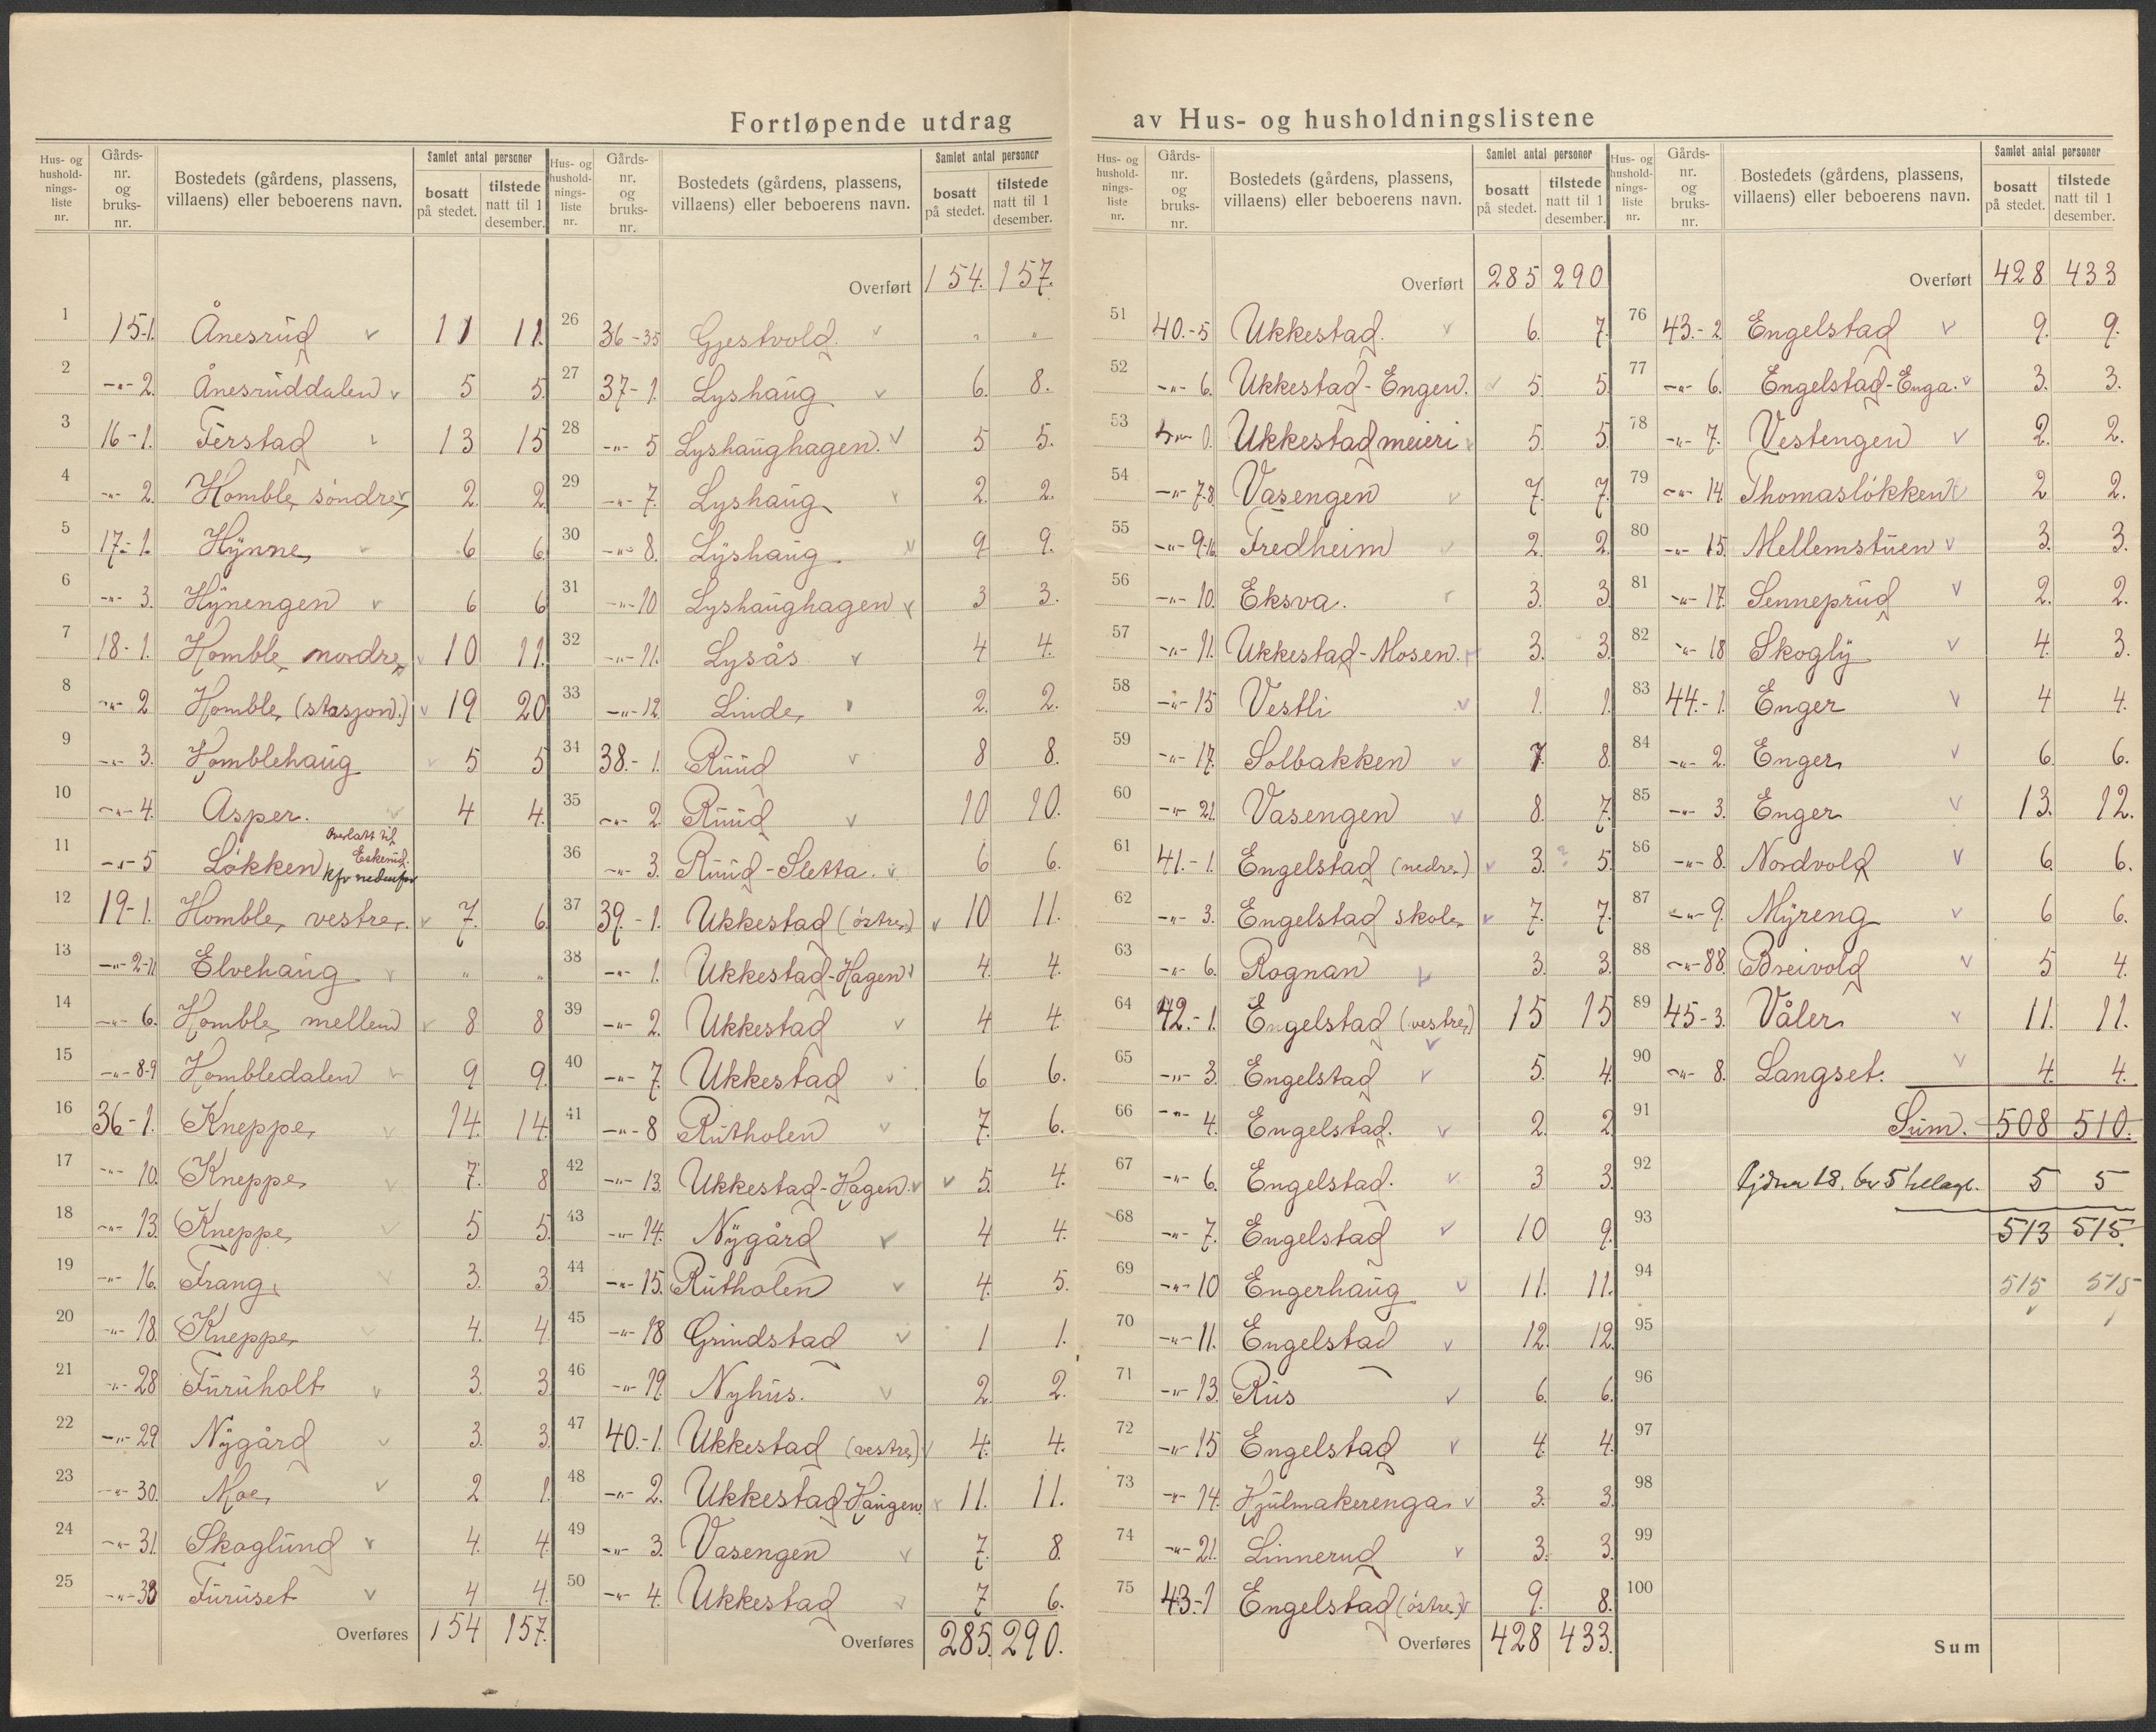 Fortløpende utdrag av Hus- og husholdningslistene
Hus- og hushold-nings-liste nr. Gårds-nr. og bruks-nr. Bostedets (gårdens, plassens, villaens) eller beboerens navn. Samlet antal personer bosatt på stedet. tilstede natt til 1 desember.
1 15-1. Ånesrud v 11 11.
2 -"- 2. Ånesruddalen v 5 5.
3 16-1. Ferstad v 13 15
4 -"- 2. Homble, søndre v 2. 2
5 17-1. Hynne v 6 6.
6 -"- 3. Hynengen v 6 6
7 18-1. Homble nordre v 10 11.
8 -"- 2 Homble (stasjon.) v 19 20
9 -"- 3. Homblehaug v 5 5
10 -"- 4. Asper. v 4 4.
11 -"- 5 Løkken Overlatt til Eskerud. kfr nedenfor
12 19-1. Homble, vestre. v 7. 6
13 -"- 2-11 Elvehaug v " "
14 -"- 6. Homble, mellem v 8. 8
15 -"- 8-9 Hombledalen v 9 9.
16 36-1. Kneppe v 14. 14
17 -"- 10. Kneppe v 7. 8
18 -"- 13. Kneppe v 5 5
19 -"- 16. Trang. v 3. 3
20 -"- 18. Kneppe v 4. 4
21 -"- 28 Furuholt v 3. 3
22 -"- 29 Nygård v 3. 3.
23 -"- 30. Moe v 2 1.
24 -"- 31. Skoglund v 4. 4.
25 -"- 38 Furuset v 4 4.
Overføres 154 157.
Hus- og hushold-nings-liste nr. Gårds-nr. og bruks-nr. Bostedets (gårdens, plassens, villaens) eller beboerens navn. Samlet antal personer bosatt på stedet. tilstede natt til 1 desember.
Overført 154. 157.
26 36-35 Gjestvold. v " "
27 37-1. Lyshaug v 6. 8.
28 -"- 5 Lyshaughagen. v 5 5.
29 -"- 7. Lyshaug v 2. 2.
30 -"- 8. Lyshaug. v 9 9.
31 -"- 10 Lyshaughagen v 3 3.
32 -"- 11. Lysås v 4 4.
33 -"- 12. Linde, v 2. 2.
34 38.-1. Ruud v 8 8.
35 -"- 2. Ruud v 10 10.
36 -"- 3. Ruud-Sletta. v 6 6.
37 39.-1. Ukkestad (østre) v 10 11.
38 -"- 1. Ukkestad-Hagen v 4. 4.
39 -"- 2. Ukkestad v 4 4.
40 -"- 7. Ukkestad v 6 6.
41 -"- 8 Rutholen v 7. 6.
42 -"- 13. Ukkestad-Hagen. v v 5. 4.
43 -"- 14. Nygård v 4 4.
44 -"- 15. Rutholen v 4. 5.
45 -"- 18 Grindstad v 1 1.
46 -"- 19. Nyhus. v 2. 2.
47 40.-1. Ukkestad (vestre) v 4. 4.
48 -"- 2. Ukkestad-Haugen v 11. 11.
49 -"- 3. Vasengen v 7. 8.
50 -"- 4. Ukkestad v 7 6.
Overføres 285. 290.
Hus- og hushold-nings-liste nr. Gårds-nr. og bruks-nr. Bostedets (gårdens, plassens, villaens) eller beboerens navn. Samlet antal personer bosatt på stedet. tilstede natt til 1 desember.
Overført 285 290
51 40.-5 Ukkestad. v 6. 7.
52 -"- 6. Ukkestad-Engen. v 5 5
53 Ukkestad meieri v 5. 5
54 -"- 7.8. Vasengen v 7. 7.
55 -"- 9-16 Fredheim v 2. 2.
56 -"- 10. Eksva. v 3. 3
57 -"- 11. Ukkestad-Mosen. v 3. 3.
58 -"- 15 Vestli v 1. 1.
59 -"- 17. Solbakken v 7. 8.
60 -"- 21. Vasengen v 8. 7.
61 41.-1. Engelstad (nedre) v 3. ? 5
62 -"- 3. Engelstad skole v 7. 7.
63 -"- 6. Rognan v 3. 3.
64 42.-1. Engelstad (vestre) v 15 15
65 -"- 3. Engelstad v 5. 4.
66 -"- 4. Engelstad. v 2. 2
67 -"- 6. Engelstad. v 3 3.
68 -"- 7. Engelstad v 10 9.
69 -"- 10 Engerhaug v 11. 11.
70 -"- 11. Engelstad v 12. 12.
71 -"- 13. Rus v 6. 6.
72 -"- 15 Engelstad v 4. 4.
73 -"- 14. Hjulmakerenga. v 3. 3.
74 -"- 21. Linnerud v 3. 3.
75 43-1 Engelstad (østre) v 9. 8.
Overføres 428 433.
Hus- og hushold-nings-liste nr. Gårds-nr. og bruks-nr. Bostedets (gårdens, plassens, villaens) eller beboerens navn. Samlet antal personer bosatt på stedet. tilstede natt til 1 desember.
Overført 428 433
76 43.-2. Engelstad v 9. 9.
77 -"- 6. Engelstad-Enga. v 3. 3.
78 -"- 7. Vestengen v 2. 2.
79 -"- 14. Thomasløkken v 2 2.
80 -"- 15. Mellemstuen v 3. 3.
81 -"- 17. Senneprud v 2. 2.
82 -"- 18 Skogly v 4. 3.
83 44.-1. Enger v 4 4.
84 -"- 2. Enger v 6. 6.
85 -"- 3. Enger v 13. 12.
86 -"- 8. Nordvold v 6. 6.
87 -"- 9. Myreng v 6 6.
88 -"- 88. Breivold v 5 4.
89 45-3. Våler v 11. 11.
90 -"- 8. Langset. v 4. 4.
91 Sum. 508 510.
92 18. 5 5 5
93 513 515.
94 515 515
95 v
96
97
98
99
100
Sum